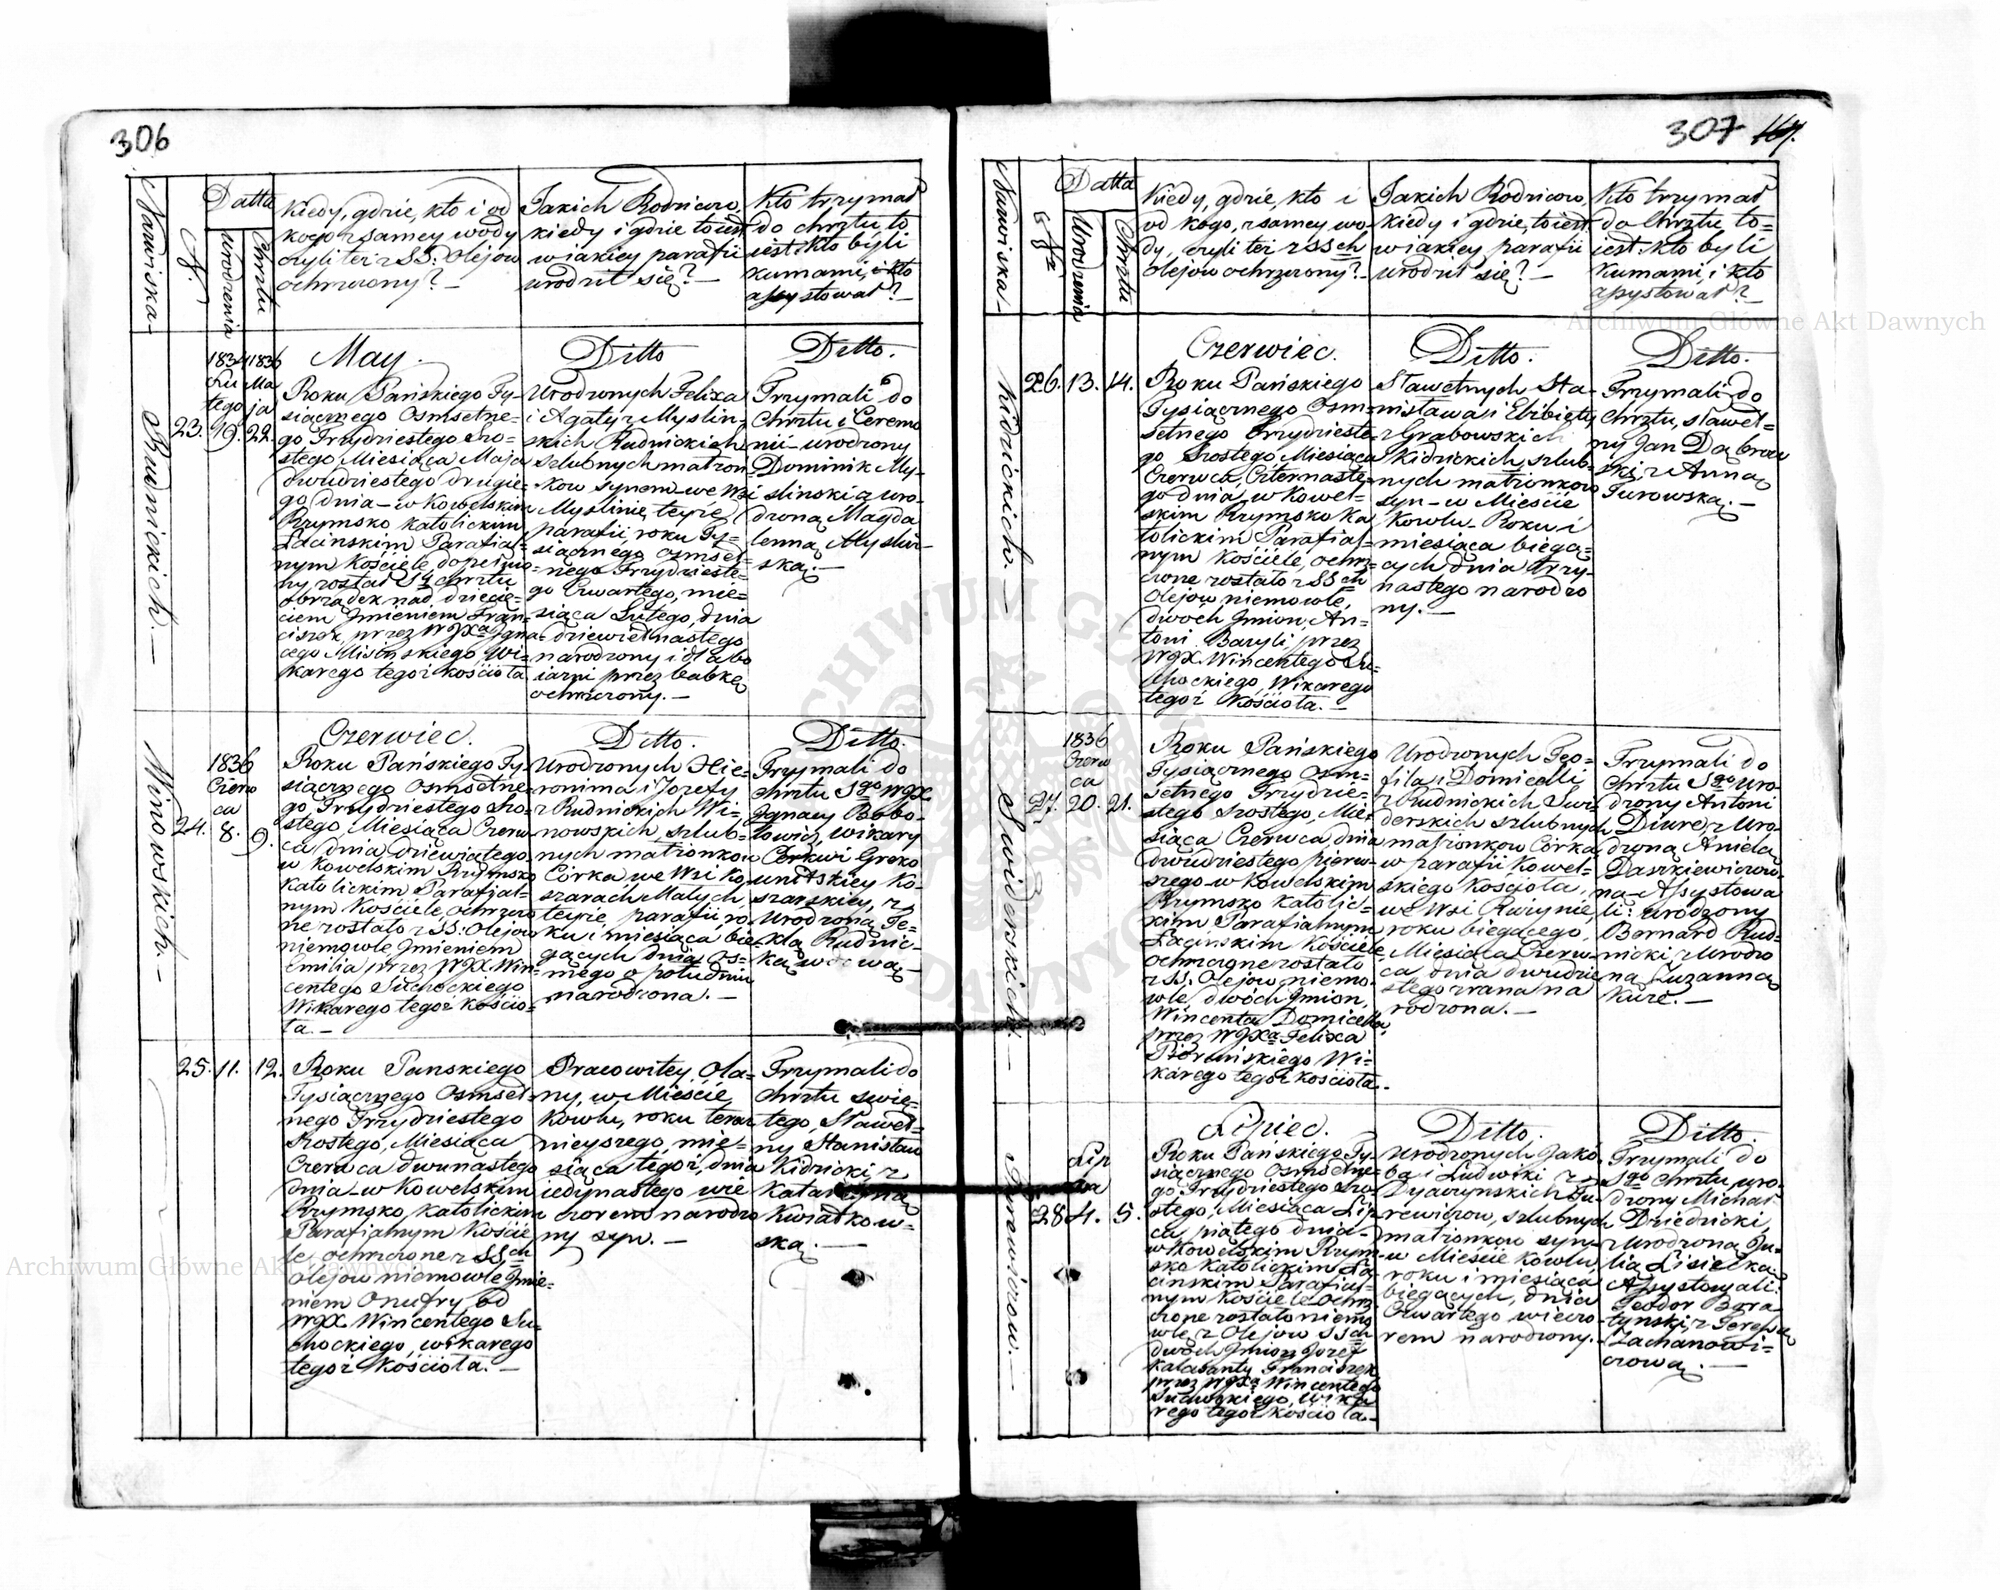 306
Nazwiska
N.
Datta
Urodzenia
Chrztu
Kiedy, gdzie, kto i od
kogo z samey wody
czyli też z SS: Olejow
ochrzczony? —
Jakich Rodzicow,
kiedy i gdzie, to iest
w iakiey parafii
urodził się? —
Kto trzymał
do chrztu, to
iest: kto byli
kumami, i kto
assystował? —
Rudnickich. —
23.
1834
Lu
tego
19.
1836
Ma
ja
22.
May.
Roku Pańskiego Ty-
siącznego Osmsetne-
go Trzydziestego Szo-
stego, Miesiąca Maja
dwudziestego drugie-
go dnia — w Kowelskim
Rzymsko Katolickim
Łacinskim Parafial-
nym Kościele dopełnio-
ny został Sgo chrztu
obrządek nad dziecie-
ciem Imieniem Fran-
ciszek, przez WJXa Igna-
cego Misinskiego Wi-
karego tegoż kościoła
Ditto
Urodzonych Felixa
i Agaty z Myslin-
skich Rudnickich
szlubnych małżon-
kow synem — we Wsi
Myslinie teyże
parafii, roku Ty-
siącznego osmset-
nego Trzydzieste-
go Czwartego, mie-
siąca Lutego, dnia
dziewietnastego
narodzony i dla bo
iazni przez babkę
ochrzczony. —
Ditto.
Trzymali do
Chrztu i Ceremo
nii — urodzony
Dominik My-
slinski z uro-
dzoną Magda
lenną Myslin-
ską. —
Winowskich. —
24.
1836
Czerw
ca
8.
9.
Czerwiec.
Roku Pańskiego Ty-
siącznego Osmsetne-
go Trzydziestego Szo-
stego, Miesiąca Czerw-
ca dnia dziewiatego
w Kowelskim Rzymsko
Katolickim Parafial-
nym Kościele, ochrzczo
ne zostało z SS: Olejow
niemowle, Imieniem
Emilia przez WJX. Win-
centego Suchockiego
Wikarego tegoż kościo-
ła. —
Ditto.
Urodzonych Hie-
ronima i Jozefy
z Rudnickich Wi-
nowskich, szlub-
nych małżonkow
Córka we Wsi Ko-
szarach Małych,
teyże parafii, ro-
ku i miesiąca bie-
gących dnia os-
mego o południu
narodzona. —
Ditto.
Trzymali do
chrztu Sgo WJX
Ignacy Bobo-
łowicz, wikary
Cerkwi Greko
unitskiey Ko-
szarskiey, z
Urodzoną Te-
klą Rudnic-
ką wdową —
25.
11.
12.
Roku Panskiego
Tysiącznego Osmset-
nego Trzydziestego
szostego, Miesiąca
Czerwca dwunastego
dnia — w Kowelskim
Rzymsko, Katolickim
Parafialnym Koscie
le ochrzczone z SSch
olejow niemowle Imie-
niem Onufry, od
WJX. Wincentego Su-
chockiego, wikarego
tegoż Kościoła. —
Pracowitey Ola-
ny, w Mieście
Kowlu, roku teraz
nieyszego, mie-
siąca tegoż, dnia
iedynastego wie
czorem narodzo
ny syn. —
Trzymali do
chrztu swie-
tego, Sławet-
ny Stanisław
Kidzicki z
Katarzyną
Kwiatkow-
ską. —
307
167.
Nazwiska
Nr
Datta
Urodzenia
Chrztu
Kiedy, gdzie, kto i
od kogo, z samey wo-
dy, czyli też z SSch
olejow ochrzczony? —
Jakich Rodzicow,
kiedy i gdzie, to iest
w iakiey parafii
urodził się? —
Kto trzymał
do Chrztu to=
iest: kto byli
Kumami, i kto
assystował? —
Kidzickich. —
26.
13.
14.
Czerwiec.
Roku Pańskiego
Tysiącznego Osm-
setnego Trzydzieste-
go Szostego Miesiąca
Czerwca, Czternaste-
go dnia w Kowel-
skim Rzymsko Ka
tolickim Parafial-
nym Kościele, ochrz-
czone zostało z SSch
Olejow niemowle,
dwóch Imion, An-
toni Bazyli przez
WJX. Wincentego Su-
chockiego, Wikarego
tegoż Kościoła. —
Ditto.
Sławetnych Sta-
nisława i Elżbiety
z Grabowskich
Kidzickich, szlub-
nych małżonkow
syn — w Mieście
Kowlu — Roku i
miesiąca biegą-
cych dnia trzy-
nastego narodzo
ny. —
Ditto.
Trzymali do
chrztu, sławet-
ny Jan Dąbrow
ski, z Anną
Turowską. —
Swiderskich. —
27.
1836
Czerw
ca
20.
21.
Roku Pańskiego
Tysiącznego Osm-
setnego Trzydzie-
stego Szostego, Mie-
siąca Czerwca, dnia
dwudziestego pierw-
szego — w Kowelskim
Rzymsko Katolic-
kim Parafialnym
Łacinskim Kościele
ochrzczone zostało
z SS. Olejow niemo-
wle, dwóch Imion,
Wincenta Domicella,
przez WJXa Felixa
Piorunskiego Wi-
karego tegoż kościoła.
Urodzonych Teo-
fila i Domicelli
z Rudnickich Swi-
derskich szlubnych
małżonkow Córka
w parafii Kowel-
skiego Kościoła,
we Wsi Rużynie
roku biegącego,
Miesiąca Czerw-
ca, dnia dwudzie
stego zrana na
rodzona. —
Trzymali do
Chrztu Sgo, Uro-
dzony Antoni
Diure, z Uro-
dzoną Anielą
Daszkiewiczow-
ną — Assystowa
li: urodzony
Bernard Rud-
nicki z Urodzo
ną Zuzanną
Kurz. —
Jurewiczow. —
28
Lip
ca
4.
5.
Lipiec.
Roku Pańskiego Ty-
siącznego Osmsetne-
go Trzydziestego Szo-
stego, Miesiąca Lip
ca, piatego dnia —
w Kowelskim Rzym-
sko Katolickim Ła-
cinskim Parafial-
nym Kościele ochrz
czone zostało niemo
wle, z Olejow SSch
dwóch Imion Jozef
Kalasanty Franciszek
przez WJXa Wincentego
Suchockiego, Wika
rego tegoż kościoła —
Ditto.
Urodzonych Jakó-
ba i Ludwiki z
Dyaczynskich Ju-
rewiczow, szlubnych
małżonkow syn —
w Mieście Kowlu,
roku i miesiąca
biegących, dnia
Czwartego wieczo
rem narodzony. —
Ditto.
Trzymali do
Sgo chrztu, uro-
dzony Michał
Dziedzicki
z Urodzoną Ju-
lią Lisiecką.
Assystowali:
Teodor Bora-
tynski, z Teresą
Zachanowi-
czową. —
Archiwum Główne Akt Dawnych
Archiwum Główne Akt Dawnych